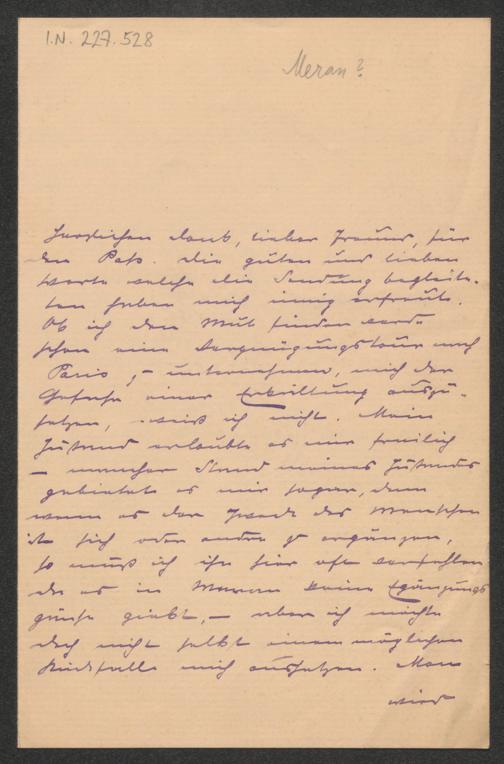 I.N. 227.528
Meran?
Herzlichen Dank, lieber Freund, für
den Pass. Die guten und lieben
Worte welche die Sendung begleite-
ten haben mich innig erfreut.
Ob ich den Mut finden werde
schon eine Vergnügungstour nach
Paris, – unternehmen, mich der
Gefahr einer Erkältung auszu-
setzen, weiß ich nicht. Mein
Zustand erlaubte es mir freilich
– mancher Stand meines Zustandes
gebietet es mir sogar, denn
wenn es der Zweck des Menschen
ist sich oder andre z ergänzen,
so muß ich ihn hier oft verfehlen
da es in Meran keine
giebt, – aber ich möchte
doch nicht selbst einem möglichen
Rückfalle mich aussetzen. Man
wird